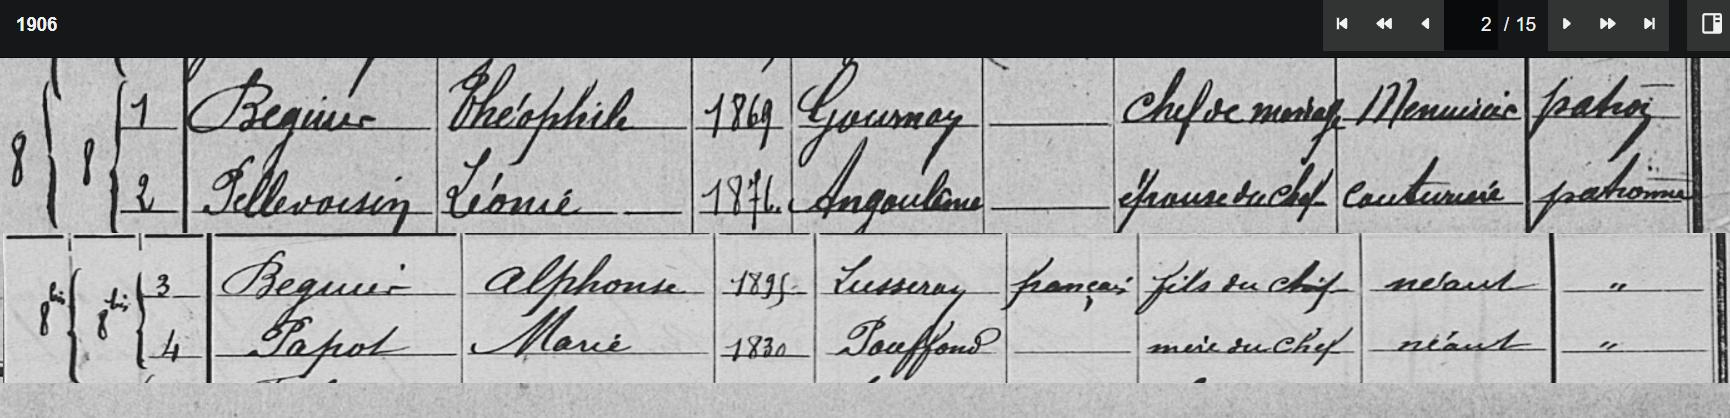 1906 2 / 15
8 8 1 Beguier Théophile 1869 Gournay chef de ménage Menuisier patron
2 Pellevoisin Léonie 1876 Angoulême épouse du chef couturière patronne
8bis 8bis 3 Beguier Alphonse 1895 Lusseray français fils du chef néant "
4 Papot Marie 1830 Pouffond mère du chef néant "